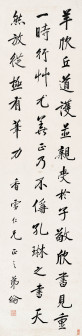 羊欣丘道護並親受於子敬欣書見重
一時行艸尤善正乃不稱孔琳之書天
然放縱極有筆力 香雪仁兄正之 弟